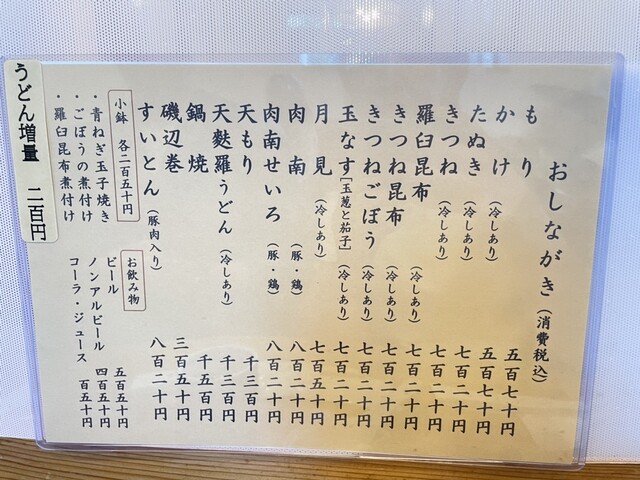 おしながき (消費税込)
もり 五百七十円
かけ (冷しあり) 五百七十円
たぬき (冷しあり) 七百二十円
きつね (冷しあり) 七百二十円
羅臼昆布 (冷しあり) 七百二十円
きつね昆布 (冷しあり) 七百二十円
きつねごぼう (冷しあり) 七百二十円
玉なす [玉葱と茄子] (冷しあり) 七百二十円
月見 (冷しあり) 七百五十円
肉南 (豚・鶏) 八百二十円
肉南せいろ (豚・鶏) 八百二十円
天もり 千三百円
天麩羅うどん (冷しあり) 千三百円
鍋焼 千五百円
磯辺巻 三百五十円
すいとん (豚肉入り) 八百二十円
小鉢 各二百五十円
・青ねぎ玉子焼き
・ごぼうの煮付け
・羅臼昆布煮付け
お飲み物
ビール 五百五十円
ノンアルビール 四百五十円
コーラ・ジュース 百五十円
うどん増量 二百円